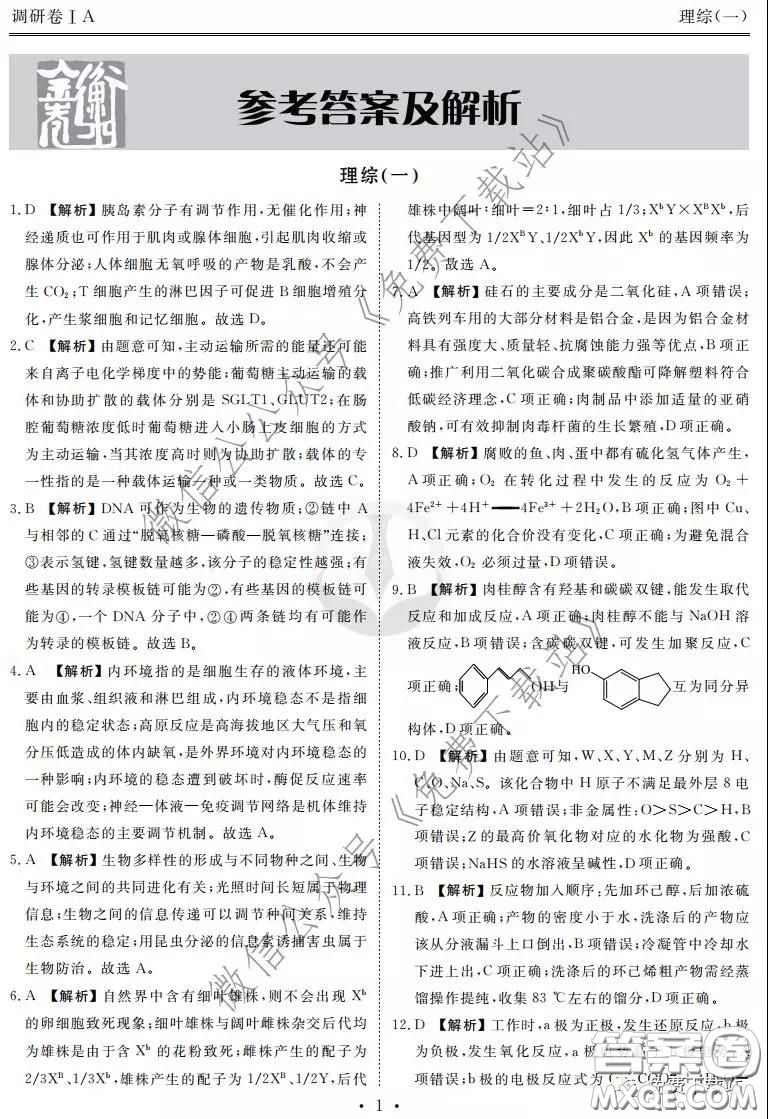 调研卷ⅠA
理综(一)
金考卷
衡中
参考答案及解析
理综(一)
1. D 【解析】胰岛素分子有调节作用,无催化作用;神
经递质也可作用于肌肉或腺体细胞,引起肌肉收缩或
腺体分泌;人体细胞无氧呼吸的产物是乳酸,不会产
生 CO₂;T 细胞产生的淋巴因子可促进 B 细胞增殖分
化,产生浆细胞和记忆细胞。故选 D。
2. C 【解析】由题意可知,主动运输所需的能量还可能
来自离子电化学梯度中的势能;葡萄糖主动运输的载
体和协助扩散的载体分别是 SGLT1、GLUT2;在肠
腔葡萄糖浓度低时葡萄糖进入小肠上皮细胞的方式
为主动运输,当其浓度高时则为协助扩散;载体的专
一性指的是一种载体运输一种或一类物质。故选 C。
3. B 【解析】DNA 可作为生物的遗传物质;②链中 A
与相邻的 C 通过“脱氧核糖—磷酸—脱氧核糖”连接;
③表示氢键,氢键数量越多,该分子的稳定性越强;有
些基因的转录模板链可能为②,有些基因的模板链可
能为④,一个 DNA 分子中,②④两条链均有可能作
为转录的模板链。故选 B。
4. A 【解析】内环境指的是细胞生存的液体环境,主
要由血浆、组织液和淋巴组成,内环境稳态不是指细
胞内的稳定状态;高原反应是高海拔地区大气压和氧
分压低造成的体内缺氧,是外界环境对内环境稳态的
一种影响;内环境的稳态遭到破坏时,酶促反应速率
可能会改变;神经—体液—免疫调节网络是机体维持
内环境稳态的主要调节机制。故选 A。
5. A 【解析】生物多样性的形成与不同物种之间、生物
与环境之间的共同进化有关;光照时间长短属于物理
信息;生物之间的信息传递可以调节种间关系,维持
生态系统的稳定;用昆虫分泌的信息素诱捕害虫属于
生物防治。故选 A。
6. A 【解析】自然界中含有细叶雄株,则不会出现 Xᵇ
的卵细胞致死现象;细叶雄株与阔叶雌株杂交后代均
为雄株是由于含 Xᵇ 的花粉致死;雌株产生的配子为
2/3Xᴮ、1/3Xᵇ,雄株产生的配子为 1/2Xᴮ、1/2Y,后代
雄株中阔叶∶细叶=2∶1,细叶占 1/3;XᵇY×XᴮXᵇ,后
代基因型为 1/2XᴮY、1/2XᵇY,因此 Xᵇ 的基因频率为
1/2。故选 A。
7. A 【解析】硅石的主要成分是二氧化硅,A 项错误;
高铁列车用的大部分材料是铝合金,是因为铝合金材
料具有强度大、质量轻、抗腐蚀能力强等优点,B 项正
确;推广利用二氧化碳合成聚碳酸酯可降解塑料符合
低碳经济理念,C 项正确;肉制品中添加适量的亚硝
酸钠,可有效抑制肉毒杆菌的生长繁殖,D项正确。
8. D 【解析】腐败的鱼、肉、蛋中都有硫化氢气体产生,
A 项正确;O₂ 在转化过程中发生的反应为 O₂ +
4Fe²⁺ +4H⁺ ══ 4Fe³⁺ +2H₂O,B 项正确;图中 Cu、
H、Cl 元素的化合价没有变化,C 项正确;为避免混合
液失效,O₂ 必须过量,D 项错误。
9. B 【解析】肉桂醇含有羟基和碳碳双键,能发生取代
反应和加成反应,A 项正确;肉桂醇不能与 NaOH 溶
液反应,B 项错误;含碳碳双键,可发生加聚反应,C
HO
项正确; OH与 互为同分异
构体,D 项正确。
10. D 【解析】由题意可知,W、X、Y、M、Z 分别为 H、
C、O、Na、S。该化合物中 H 原子不满足最外层 8 电
子稳定结构,A 项错误;非金属性:O>S>C>H,B
项错误;Z 的最高价氧化物对应的水化物为强酸,C
项错误;NaHS 的水溶液呈碱性,D 项正确。
11. B 【解析】反应物加入顺序:先加环己醇,后加浓硫
酸,A 项正确;产物的密度小于水,洗涤后的产物应
该从分液漏斗上口倒出,B 项错误;冷凝管中冷却水
下进上出,C 项正确;洗涤后的环己烯粗产物需经蒸
馏操作提纯,收集 83 ℃左右的馏分,D 项正确。
12. D 【解析】工作时,a 极为正极,发生还原反应,b 极
为负极,发生氧化反应,a
项错误;b 极的电极反应式为
· 1 ·
微信公众号《免费下载站》
微信公众号《免费下载站》
答案圈